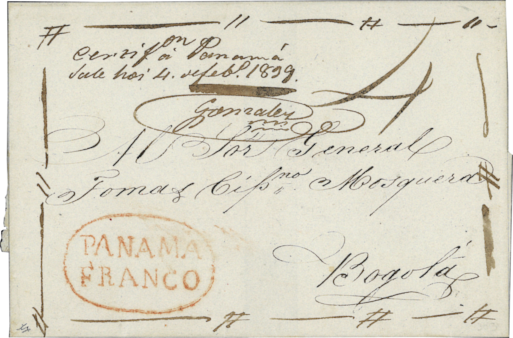 Certif.on a Panamá
Sale hoi 4. de feb.o 1829.
4
Gonzalez
Al Sor General
Tomas Cip.no Mosquera
Bogotá
PANAMA
FRANCO